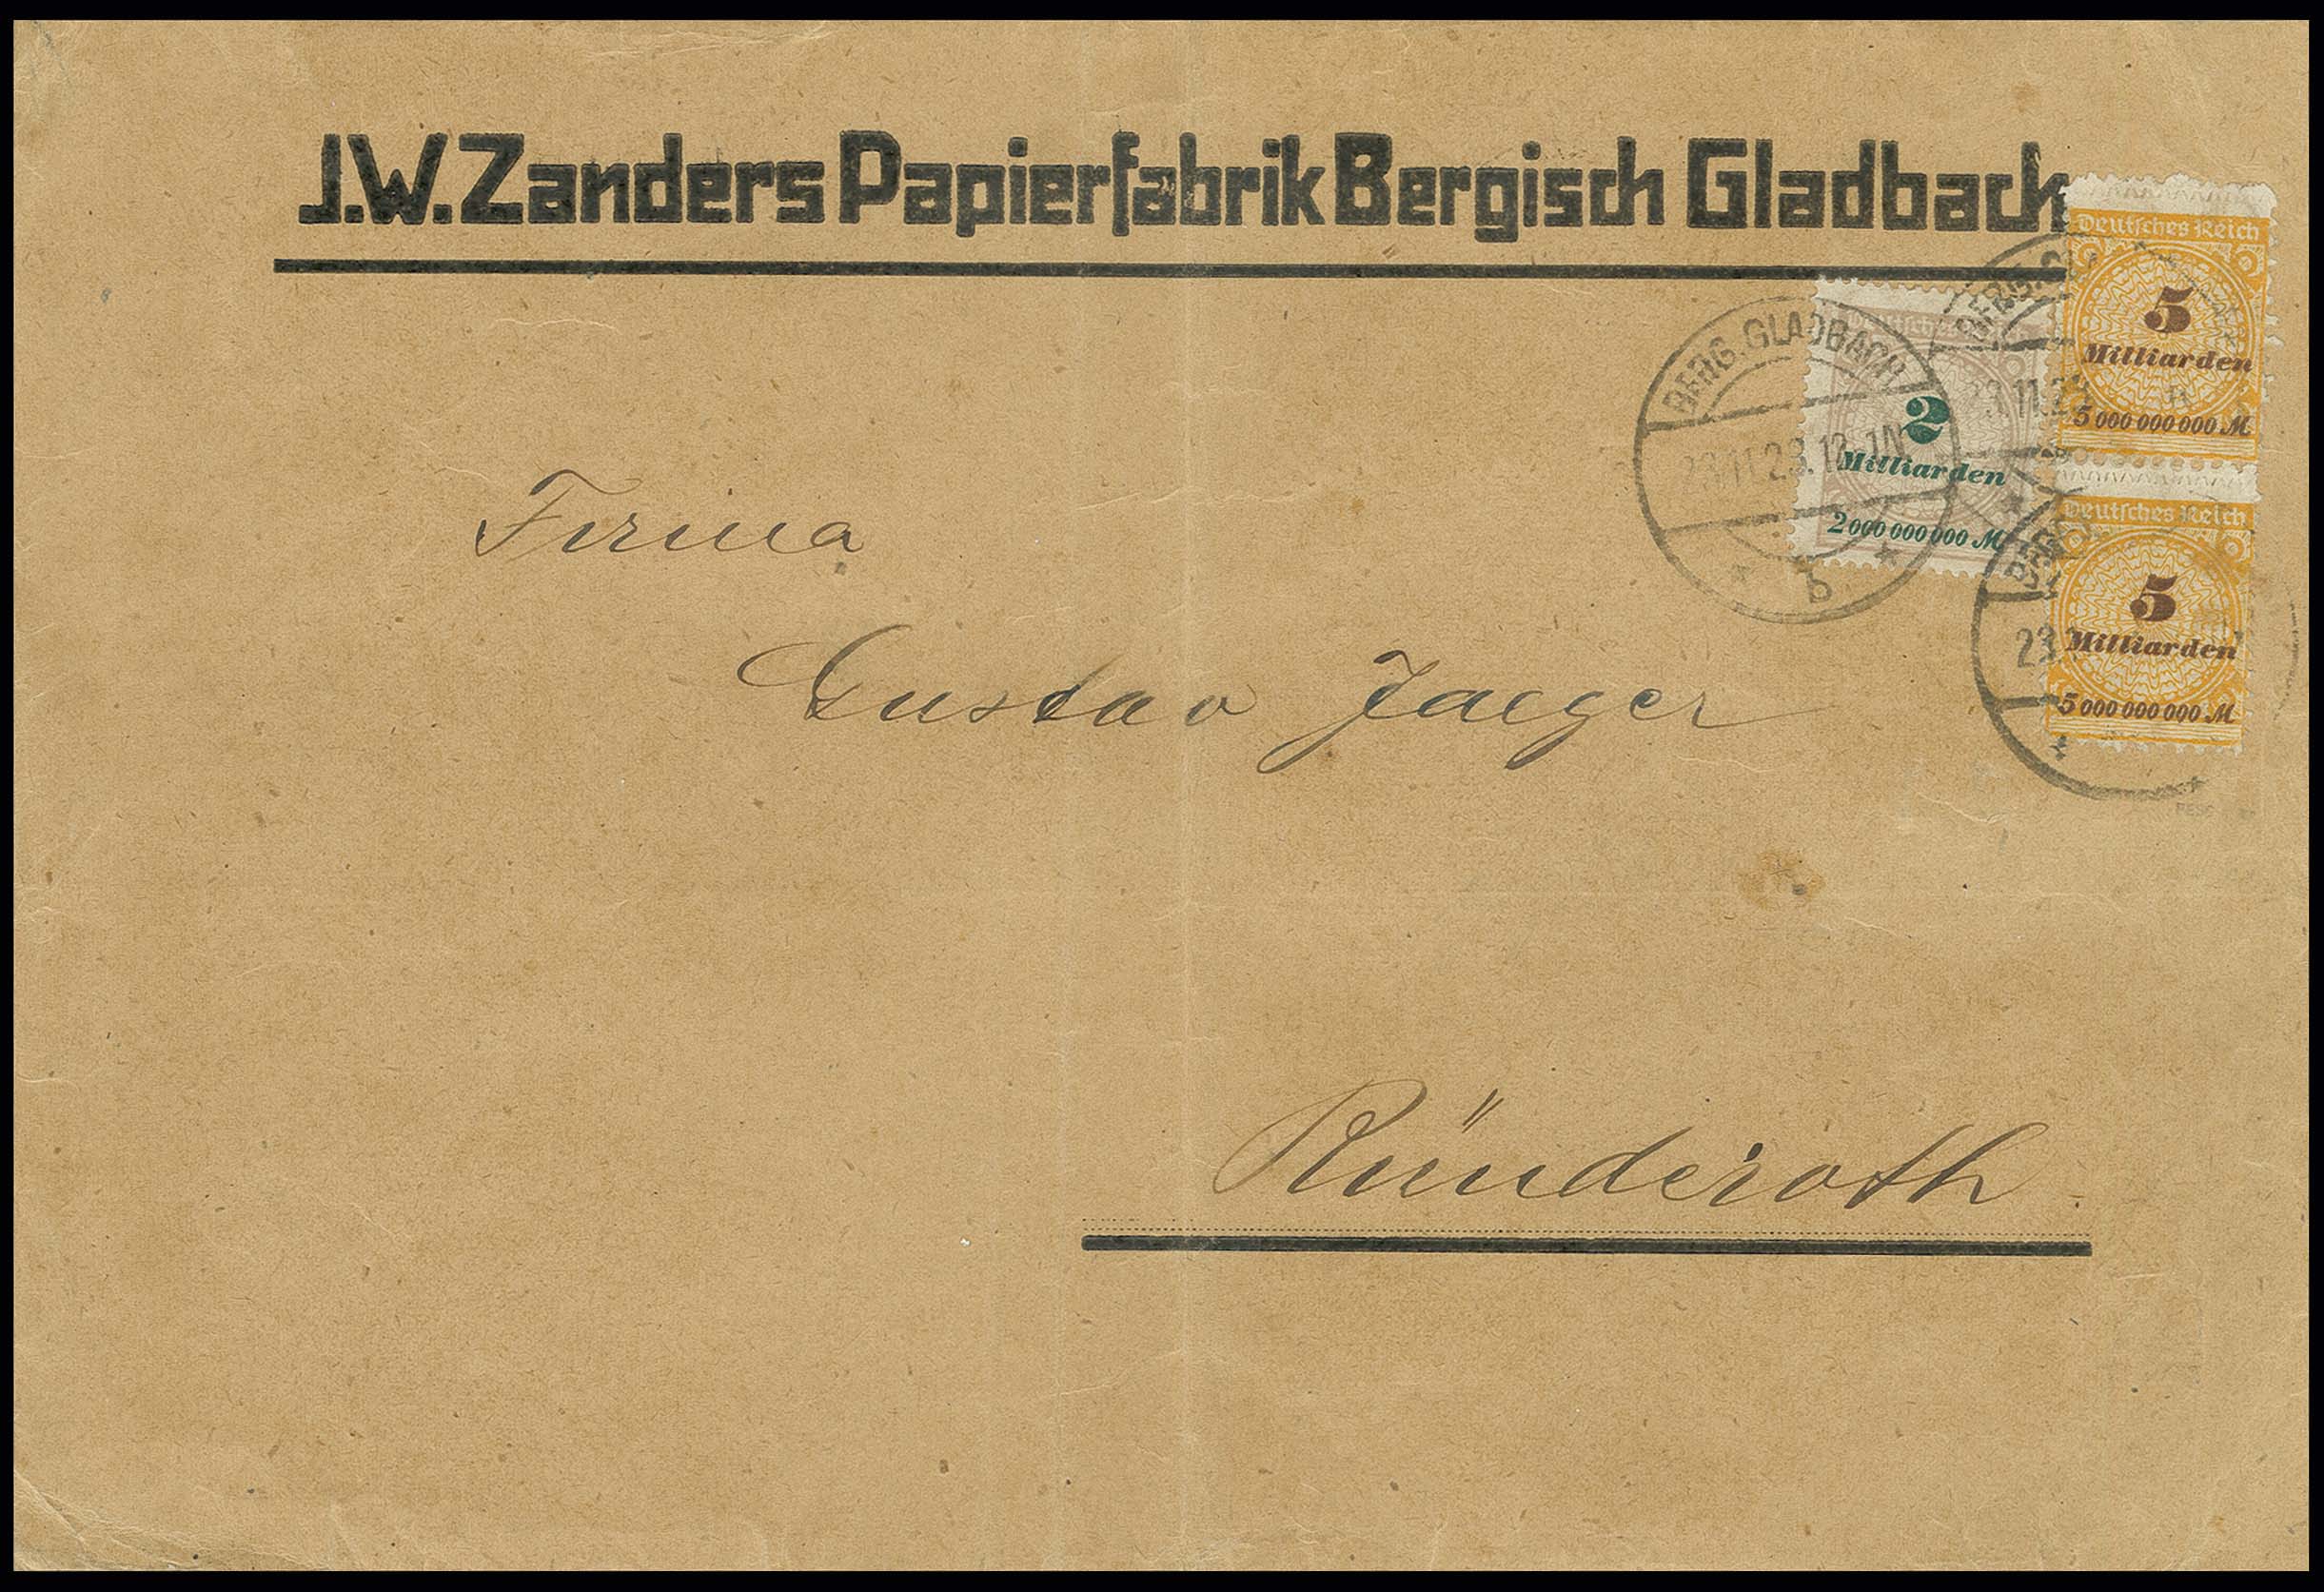 J.W. Zanders Papierfabrik Bergisch Gladbach
Deutsches Reich
5
Milliarden
5 000 000 000 M
Deutsches Reich
2
Milliarden
2 000 000 000 M
BERG. GLADBACH
23.11.23.12-1N
b
Deutsches Reich
5
Milliarden
5 000 000 000 M
Firma
Gustav Jaeger
Ründeroth